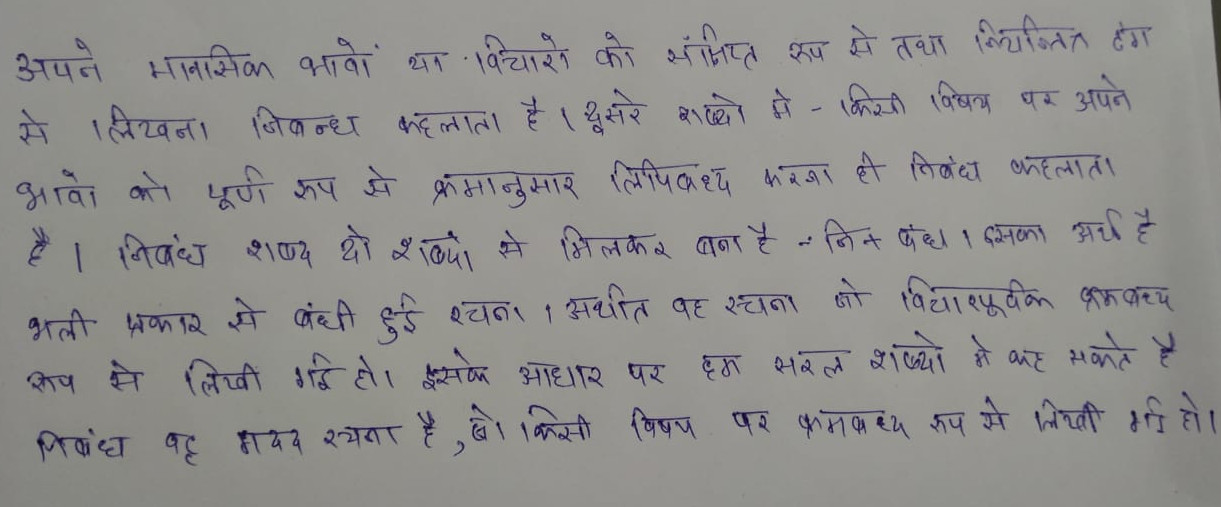 अपने मानसिक भावों या विचारो को संक्षिप्त रूप से तथा नियन्त्रित ढंग
से लिखना निबन्ध कहलाता है। दूसरे शब्दो मे - किसी विषय पर अपने
भावो को पूर्ण रूप से क्रमानुसार लिपिबध्द करना ही निबंध कहलाता
है। निबंध शब्द दो शब्दों से मिलकर बना है - नि + बंध। इसका अर्थ है
भली प्रकार से बंधी हुई रचना। अर्थात वह रचना जो विचारपूर्वक क्रमबध्द
रूप से लिखी गई हो। इसके आधार पर हम सरल शब्दो मे कह सकते है
निबंध वह गदद रचना है, जो किसी विषय पर क्रमबध्द रूप से लिखी गई हो।